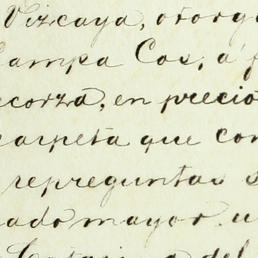 Vizcaya, otorg
Campa Cos, á f
corza, en precio
carpeta que con
repreguntas s
ado mayor. u
del